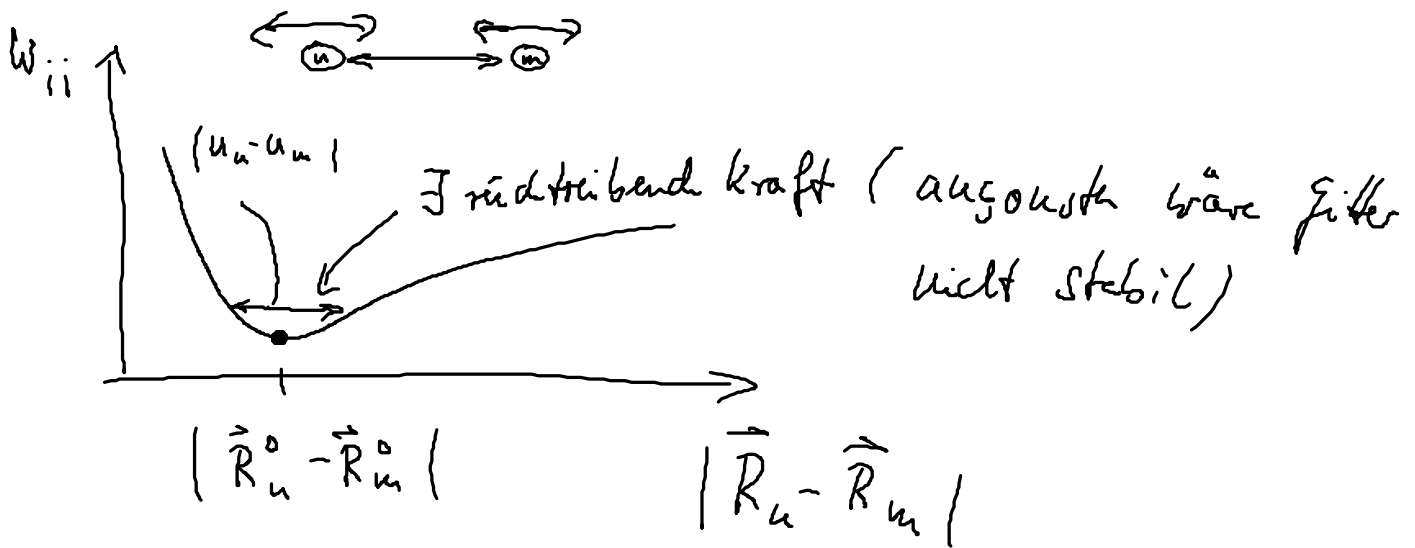 n m
W_ii
|u_n - u_m|
∃ rücktreibende Kraft ( ansonsten wäre Gitter
nicht stabil )
| R⃗_n^0 - R⃗_m^0 |
| R⃗_n - R⃗_m |